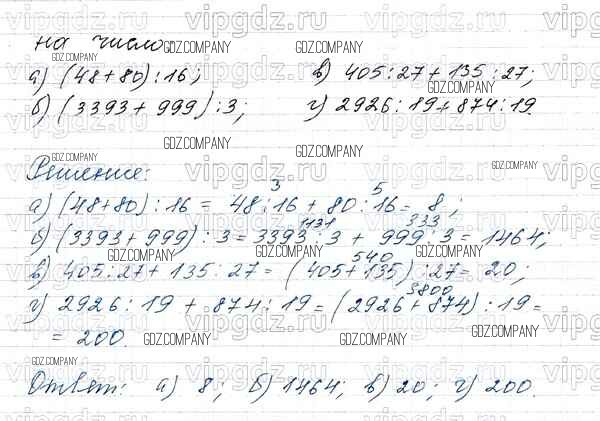 на число
а) (48+80):16;
в) 405:27+135:27;
б) (3393+999):3;
г) 2926:19+874:19.
Решение:
3 5
а) (48+80):16 = 48:16 + 80:16 = 8;
1131 333
б) (3393+999):3 = 3393:3 + 999:3 = 1464;
540
в) 405:27+135:27 = (405+135):27 = 20;
3800
г) 2926:19 + 874:19 = (2926+874):19 =
= 200.
Ответ: а) 8; б) 1464; в) 20; г) 200.
vipgdz.ru
GDZ.COMPANY